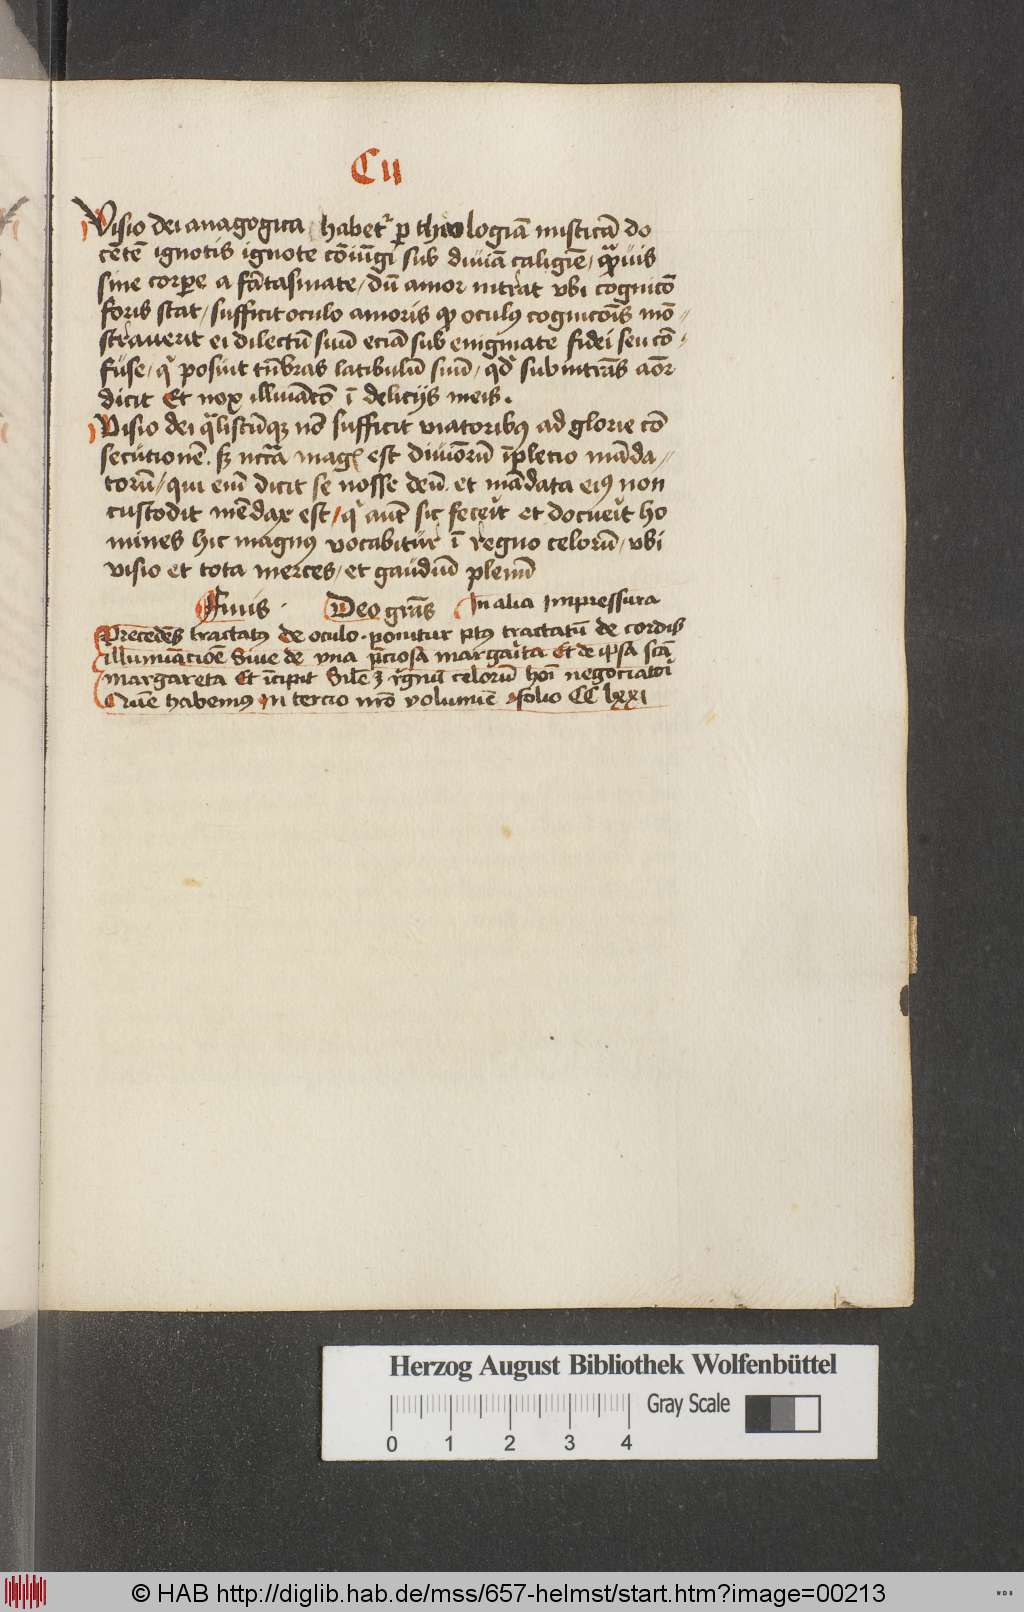 Cii
Visio dei anagogica habet᷑ ꝑ theologiā misticā do
cētē ignotis ignote cōiūgi sub diuīa caligīe / quāuis
sine corpore a fātasmate / dū amor intrat vbi cognicō
foris stat / sufficit oculo amoris ꝙ oculꝰ cognicōis mō〃
strauerit ei dilectū suū eciā sub enigmate fidei seu cō〃
fuse / qͥ posuit tēbras latibulū suū / qd̓ subintrās aōr
dicit Et nox illuīatō ī delicijs meis.
Visio dei qͣliscūqꝫ nō sufficit viatoribꝰ ad glorie cō
secutionē. sꝫ nccͣia magꝭ est diuiorū īpletio māda〃
torū / qui eīm dicit se nosse deū. et mādata eiꝰ non
custodit mēdax est / qͥ aut̄ sic feceīt et docueīt ho
mines hic magnꝰ vocabitur ī regno celorū / vbi
visio et tota merces / et gaudiū plenū
Finis · Deo grās In alia Impressura
Precedēs tractatꝰ de oculo · ponitur ptꝰ tractatū de cordis
illumīacioē Siue de vna p̄ciosa margaīta Et de ip̄sa scā
margareta Et īcipit Sile ꝫ rͤgnū celorū hoī negociatoī
Quē habemꝰ in tercio nr̄o volumīe folio CC lxxi
Herzog August Bibliothek Wolfenbüttel
0 1 2 3 4
Gray Scale
© HAB http://diglib.hab.de/mss/657-helmst/start.htm?image=00213